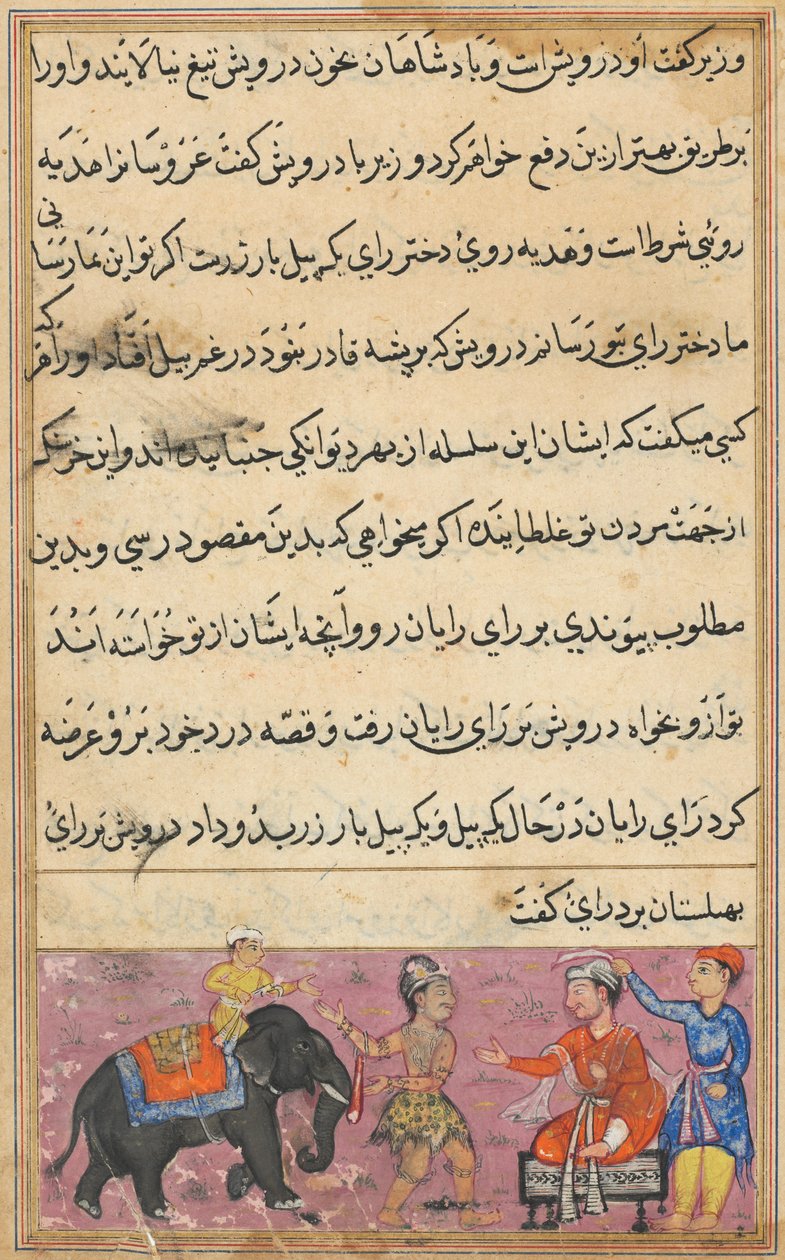 وزیر گفت او درویش است و بادشاهان بخون درویش تیغ نیالایند و اورا
بر طریق بهتر ازین دفع خواهم کرد وزیر با درویش گفت عروسانرا هدیه
روئی شرط است و هدیه روئ دختر رای یک پیل بار زرست اگر تو این بما رسانی
ما دختر رای بتو رسانم درویش که بر پشه قادر نبود در غم پیل افتاد او را هر که
کسی میکفت که ایشان این سلسله از بهر دیوانکی جنبانیده اند و این خرسنک
از جهت مردن تو غلطاینده اکر میخواهی که بدین مقصود رسی و بدین
مطلوب پیوندی بر رای رایان رو و آنچه ایشان از تو خواسته اند
تو ازو بخواه درویش بر رای رایان رفت و قصه درد خود برو عرضه
کرد رای رایان در حال یک پیل و یک پیل بار زر بدو داد درویش بر رائ
بهلستان برد رائ کفت